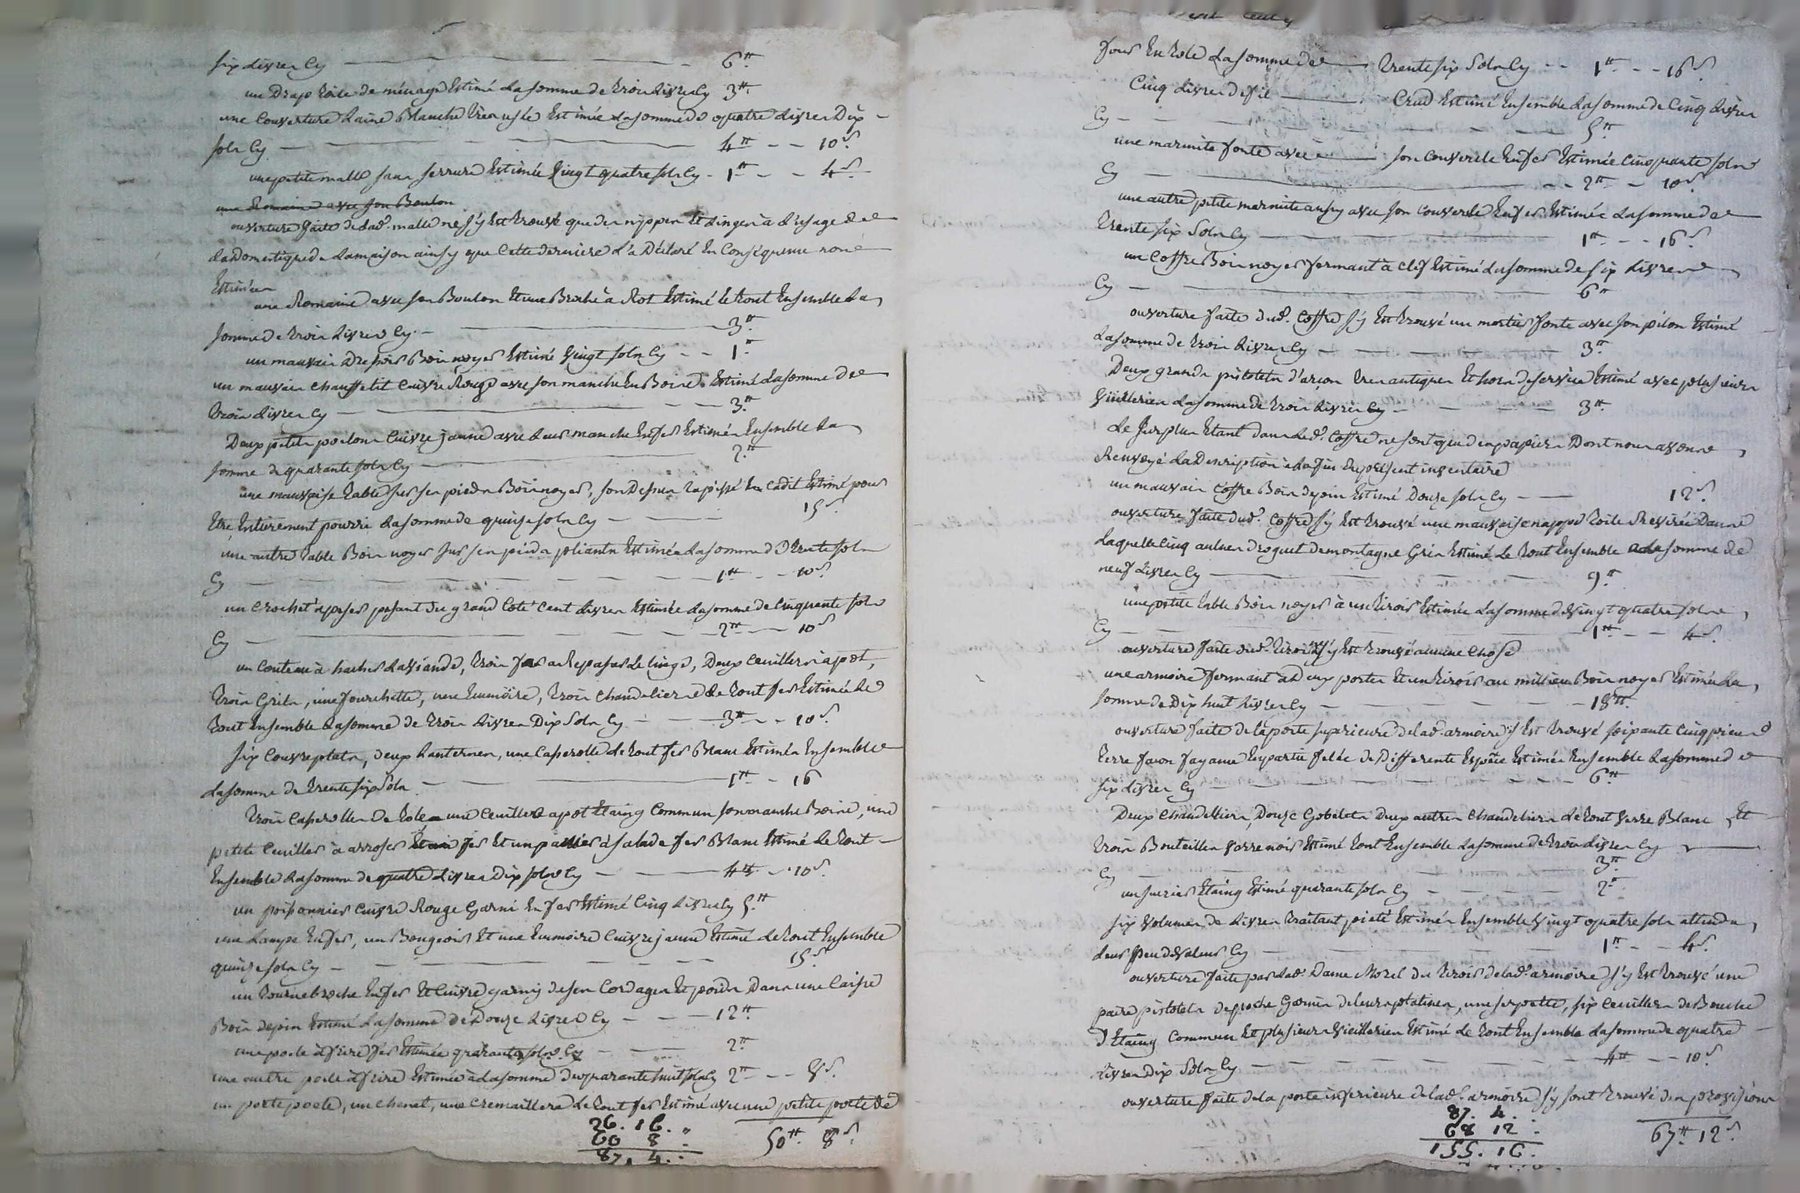 six Livres Cy — 6 ₶
un Drap toile de ménage Estimé La somme de trois Livres Cy 3 ₶
une Couverture Laine Blanche tres usée Estimée La somme de quatre Livres Dix
sols Cy — 4 ₶ - - 10 s.
une petite malle sans serrure Estimée Vingt quatre sols Cy - 1 ₶ - - 4 s.
une Romaine avec son Boulon
ouverture faite de lad. malle ne s'y Est trouvé que des nippes et Linges à L'usage de
La Domestique de La maison ainsy que Cette derniere L'a Déclaré En Consequence non
Estimées
une Romaine avec son Boulon Et une Broche à Rot Estimé le tout Ensemble La
somme de trois Livres Cy - 3 ₶
un mauvais Dressoir Bois noyer Estimé Vingt sols Cy - - 1 ₶
un mauvais chauffelit Cuivre Rouge avec son manche En Bois Estimé La somme de
trois Livres Cy — 3 ₶
Deux petits poelons Cuivre jaune avec Leurs manche En fer Estimés Ensemble La
somme de quarante sols Cy — 2 ₶
une mauvaise table sur ses pieds Bois noyer, son Dessus tapissé En Cadit Estimé pour
Etre Entierement pourrie La somme de quinze sols Cy — 15 s.
une autre table Bois noyer sur ses pieds pliants Estimée La somme de trente sols
Cy — 1 ₶ - - 10 s.
un Crochet à peser pesant du grand Coté Cent Livres Estimée La somme de Cinquante sols
Cy — 2 ₶ - - 10 s
un Couteau à hacher La viande, trois fers a Repasser Le linge, Deux Cuilleres à pot,
trois Grils, une fourchette, une Ecumoire, trois chandeliers de tout fer Estimée Le
tout Ensemble La somme de trois Livres Dix Sols Cy - 3 ₶ - - 10 s.
Six Couvreplats, deux Lanternes, une Casserolle de tout fer Blanc Estimés Ensemble
La somme de trente six Sols — 1 ₶ - 16
trois Casserolles De tole une Cuillere a pot Etaing Commun son manche Boire, une
petite Cuiller à arroser fer Et un panier à salade fer Blanc Estimé Le tout
Ensemble La somme de quatre Livres Dix sols Cy — 4 ₶ - 10 s.
un poissonnier Cuivre Rouge Garni En fer Estimé Cinq Livres Cy 5 ₶
une Lampe En fer, un Bougeoir Et une Ecumoire Cuivre jaune Estimé Le tout Ensemble
quinze sols Cy — 15 s.
un tournebroche En fer Et Cuivre garny de ses Cordages Et poids Dans une Caisse
Bois de pin Estimé La somme de Douze Livres Cy - 12 ₶
une poele à frire fer Estimée quarante sols Cy — 2 ₶
une autre poele à frire Estimée à La somme de quarante huit sols Cy 2 ₶ - - 8 s.
un porte poele, un chenet, une Cremaillere de tout fer Estimé avec une petite poele de
26. 16.
60 8
87. 4.
50 ₶ 8 s.
four En tole La somme de — trente six Sols Cy - - 1 ₶ - - 16 s.
Cinq Livres de fil — Crud Estimé Ensemble La somme de Cinq Livres
Cy — 5 ₶
une marmite fonte avec — son Couvercle En fer Estimée Cinquante sols
Cy — 2 ₶ - 10 s
une autre petite marmite aussy avec son Couvercle En fer Estimée La somme de
trente six Sols Cy — 1 ₶ - - 16 s.
un Coffre Bois noyer fermant à Clef Estimé La somme de six Livres
Cy — 6 ₶
ouverture faite dud. Coffre s'y Est trouvé un mortier fonte avec son pilon Estimé
La somme de trois Livres Cy — 3 ₶
Deux grands pistolets d'arçon tres antiques Et hors de service Estimé avec plusieurs
Vieilleries La somme de trois Livres Cy — 3 ₶
Le surplus Etant dans Led. Coffre ne sont que des papiers Dont nous avons
Renvoyé La Description à La fin du present inventaire
un mauvais Coffre Bois de pin Estimé Douze sols Cy — 12 s.
ouverture faite dud. Coffre s'y Est trouvé une mauvaise nappe toile Ressirée Dans
Laquelle Cinq aulnes droguet de montagne Gris Estimé Le tout Ensemble La somme de
neuf Livres Cy — 9 ₶
une petite table Bois noyer à un tiroir Estimée La somme de Vingt quatre sols
Cy — 1 ₶ - - 4 s.
ouverture faite dud. tiroir s'y Est trouvé aucune chose
une armoire fermant a deux portes Et un tiroir au millieu Bois noyer Estimée La
somme de Dix huit Livres Cy — 18 ₶
ouverture faite de la porte superieure de lad. armoire s'y Est trouvé soixante Cinq pieces
terre façon fayance En partie felée de Differente Espece Estimée Ensemble La somme de
six Livres Cy — 6 ₶
Deux chandeliers, Douze Gobelets Deux autres chandeliers de tout Verre Blanc Et
trois Bouteilles Verre noir Estimé tout Ensemble La somme de trois Livres Cy
Cy — 3 ₶
un sucrier Etaing Estimé quarante sols Cy — 2 ₶
six Volumes de Livres traitant pieté Estimés Ensemble Vingt quatre sols attendu
Leur peu de Valeur Cy — 1 ₶ - - 4 s.
ouverture faite par lad. Dame Morel du tiroir de lad. armoire s'y Est trouvé une
paire pistolets de poche Garnis de leurs platines, une serpette, six Cuilleres de Bouche
D'Etaing Commun Et plusieurs Vieilleries Estimé Le tout Ensemble La somme de quatre
Livres Dix Sols Cy — 4 ₶ - - 10 s
ouverture faite de la porte inferieure de lad. armoire s'y sont trouvé des provisions
87. 4.
68 12
155. 16.
67 ₶ 12 s.